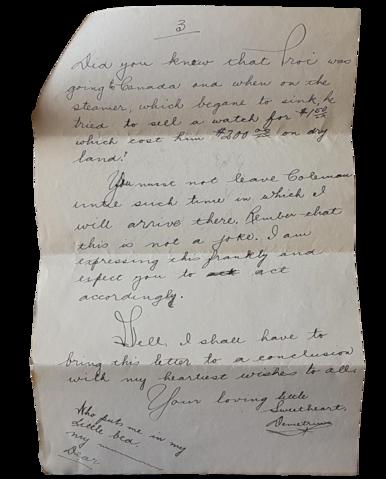 3
Did you know that Proi was
going to Canada and when on the
steamer, which begane to sink, he
tried to sell a watch for $1.00
which cost him $200.00 on dry
land?
You must not leave Coleman
untie such time in which I
will arrive there. Rember that
this is not a joke. I am
expressing this frankly and
espect you to ask act
accordingly.
Well, I shall have to
bring this letter to a conclusion
with my heartiest wishes to all.
Your loving little
Sweetheart,
Demetrius
Who puts me in my
little bed,
my
Dear